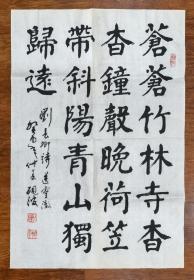 蒼蒼竹林寺杳
杳鐘聲晚荷笠
帶斜陽青山獨
歸遠
劉長卿詩送靈澈